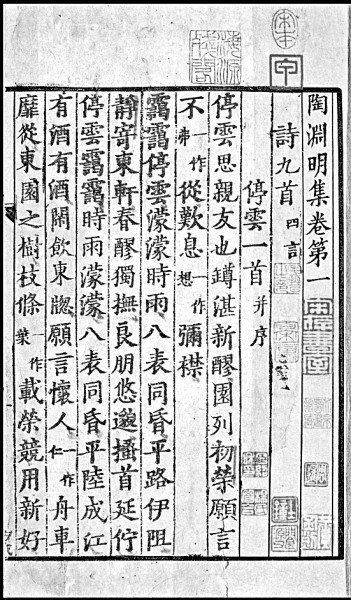 宋本
甲
陶淵明集卷第一
詩九首四言
停雲一首并序
停雲思親友也罇湛新醪園列初榮願言
不一作弗從歎息一作想彌襟
靄靄停雲濛濛時雨八表同昏平路伊阻
靜寄東軒春醪獨撫良朋悠邈搔首延佇
停雲靄靄時雨濛濛八表同昏平陸成江
有酒有酒閒飲東牎願言懷人一作仁舟車
靡從東園之樹枝條一作葉載榮競用新好